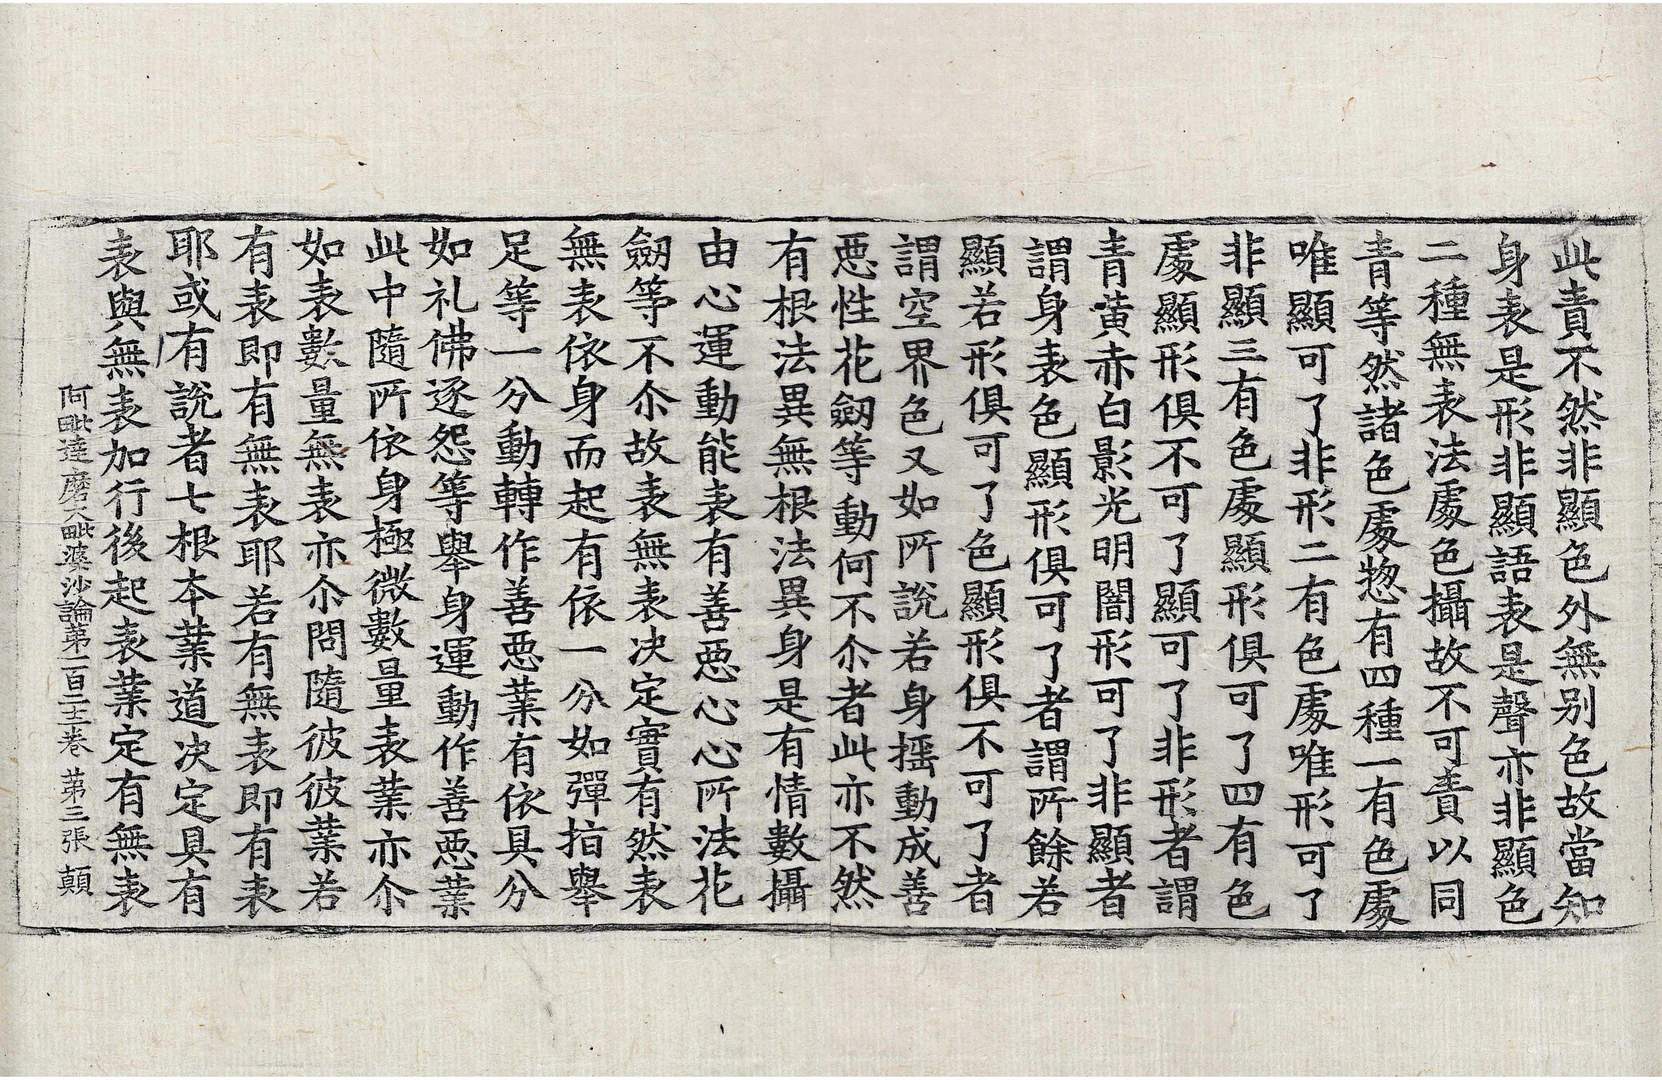 此責不然非顯色外無別色故當知
身表是形非顯語表是聲亦非顯色
二種無表法處色攝故不可責以同
青等然諸色處惣有四種一有色處
唯顯可了非形二有色處唯形可了
非顯三有色處顯形俱可了四有色
處顯形俱不可了顯可了非形者謂
青黃赤白影光明闇形可了非顯者
謂身表色顯形俱可了者謂所餘若
顯若形俱可了色顯形俱不可了者
謂空界色又如所說若身搖動成善
惡性花劒等動何不尒者此亦不然
有根法異無根法異身是有情數攝
由心運動能表有善惡心心所法花
劒等不尒故表無表決定實有然表
無表依身而起有依一分如彈指舉
足等一分動轉作善惡業有依具分
如礼佛逐怨等舉身運動作善惡業
此中隨所依身極微數量表業亦尒
如表數量無表亦尒問隨彼彼業若
有表即有無表耶若有無表即有表
耶或有說者七根本業道決定具有
表與無表加行後起表業定有無表
阿毗達磨大毗婆沙論第一百二十二卷 第三張 顛